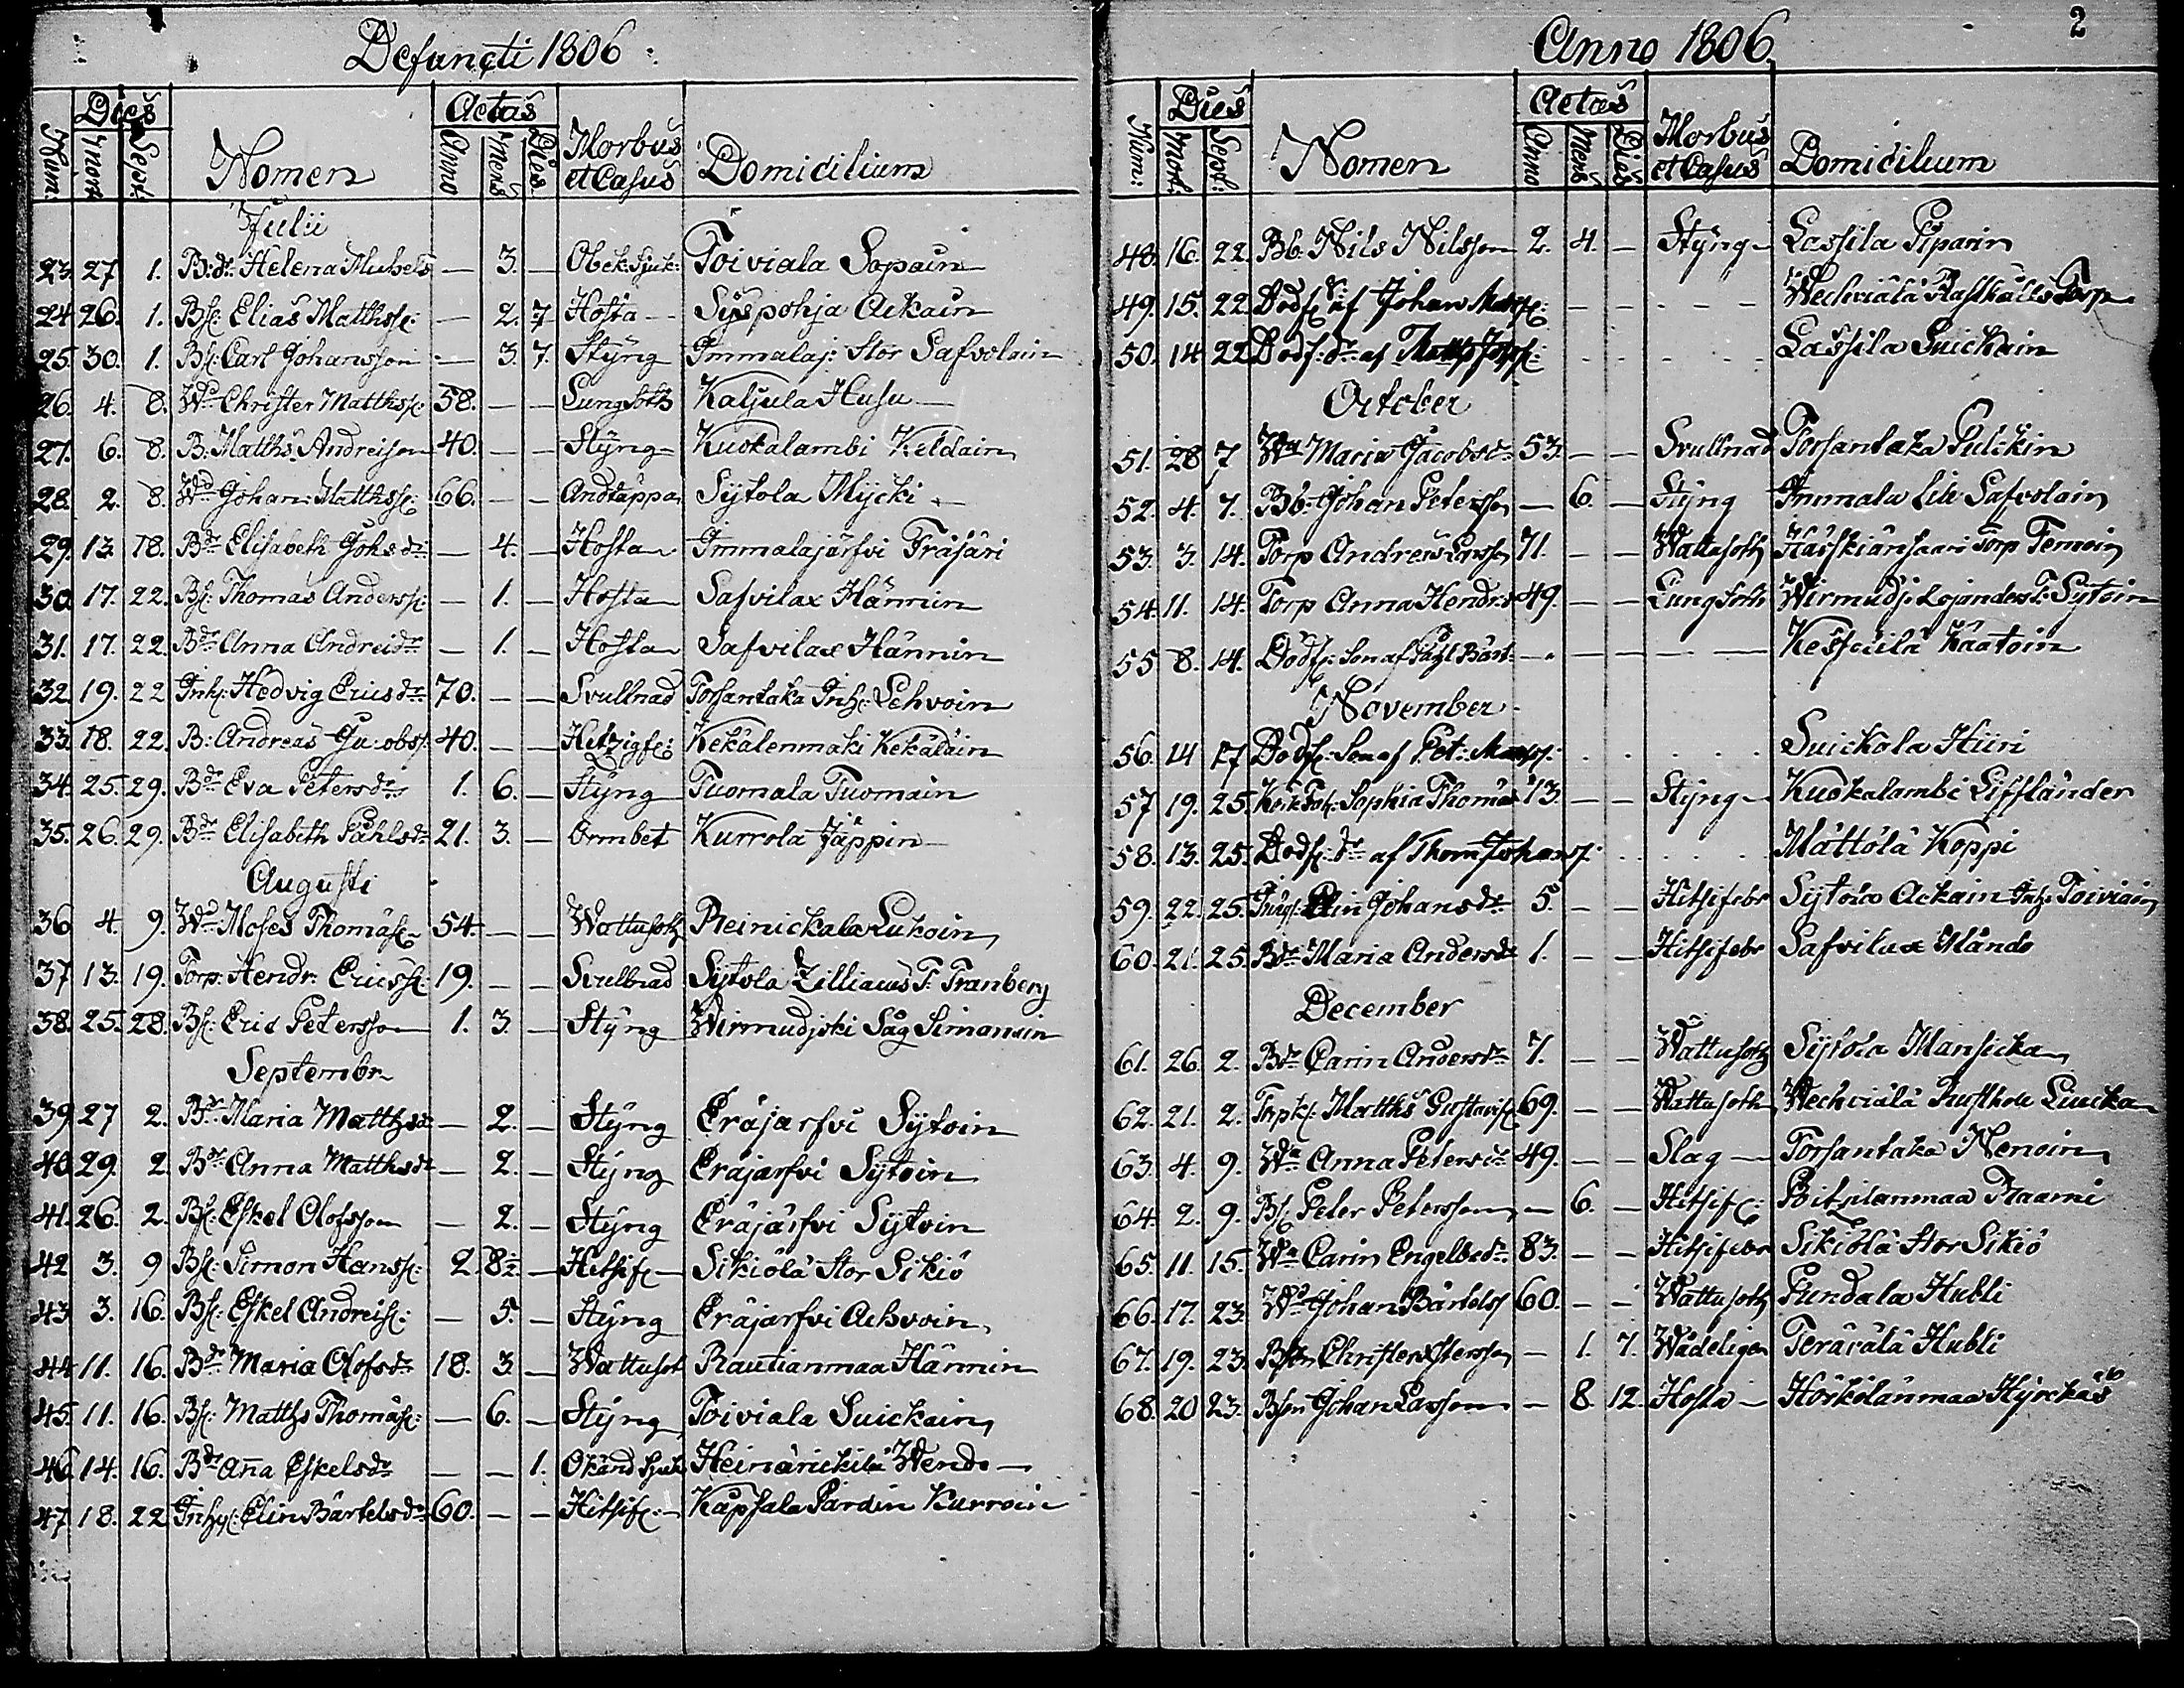 Defuncti 1806.
Num: Dies Mort. Sepet: Nomen Aetas Anno Mens Dies Morbus et Casus Domicilium
Julii
23. 27 1. B:dr Helena Michels — 3. — Obek: Sjuk: Toiviala Sopain
24 26. 1. Bs: Elias Matthss: — 2. 7 Hosta — Syspohja Ackain
25. 30. 1. Bs: Carl Johansson — 3. 7. Styng Immalaj: Stor Safvolain
26. 4. 8. Wd Christer Matthss: 58. — — Lungsoth Kaljula Husu —
27. 6. 8. B. Matths Andreison 40. — — Styng Kuokalambi Keldain
28. 2. 8. Wd Johan Matthss: 66. — — Andtäppa Sytola Mycki —
29. 13. 18. Bdr Elisabeth Johsdr — 4. — Hosta Immalajärfvi Träsäri
30 17. 22. Bs: Thomas Anderss: — 1. — Hosta Safvilax Hännin
31. 17. 22. Bdr Anna Andreidr — 1. — Hosta Safvilax Hännin
32 19. 22 Inh: Hedvig Ericsdr 70. — — Svullnad Torsantaka Inh: Lehvoin
33. 18. 22. B: Andreas Jacobss: 40. — — Hetzigfe: Kekälenmäki Kekäläin
34. 25. 29. Bdr Eva Petersdr 1. 6. — Styng Tuomala Tuomain
35. 26. 29. Bdr Elisabeth Påhlsdr 21. 3. — Ormbet Kurrola Jäppin —
Augusti
36 4. 9. Wd: Moses Thomäss: 54. — — Wattusoth Reinickala Lukoin
37 13. 19. Torp. Hendr: Ericss: 19. — — Svullnad Sytola Zilliacus T. Tranberg
38. 25. 28. Bs: Eric Petersson 1. 3. — Styng Wirmudjoki Såg Simonain
Septembr
39. 27 2. Bdr Maria Matthsdr — 2. — Styng Eräjärfvi Sytoin
40 29. 2 Bdr Anna Matthsdr — 2. — Styng Eräjärfvi Sytoin
41. 26. 2. Bs: Eskel Olofsson — 2. — Styng Eräjärfvi Sytoin
42 3. 9 Bs: Simon Hanss: 2. 8½ — Hitsife — Sikiölä Stor Sikiö
43 3. 16. Bs: Eskel Andreiss: — 5. — Styng Eräjärfvi Ackvoin
44 11. 16. Bdr Maria Olofsdr 18. 3. — Wattusot Rautianmaa Hännin
45. 11. 16. Bs: Matths Thomäss: — 6. — Styng Toiviala Suickain
46. 14. 16. Bdr Aña Eskelsdr — — 1. Okänd Sjuk Heinärickilä Wend —
47 18. 22 Inhys: Elin Bärtelsdr 60. — — Hitsife: — Kåpsala Pardin Kurroin
Anno 1806. 2
Num: Dies Mort: Sepet: Nomen Aetas Anno Mens Dies Morbus et Casus Domicilium
48. 16. 22. Bb. Nils Nilsson 2. 4. — Styng — Lassila Piparin
49. 15. 22. Dödf. S. af Johan Matss: — — — Wechviälä Torp
50. 14 22 Dödf. dr af Matths Lassila Suickain
October
51. 28 7 Wa Maria Jacobsdr 53. — — Svullnad Torsantaka Pulckin
52. 4. 7. Bb: Johan Petersson — 6. — Styng Immala Lill Safvolain
53. 3. 14. Torp Andreas Larsson 71. — — Wattusoth Torp Temoin
54. 11. 14. Torp Anna Hendrs: 49. — — Lungsoth Wirmudj: Lojander T: Sytoin
55 8. 14. Dödf: Son af Påhl Bärt: — — — Kesseilä Kaatoin
November
56. 14 17 Dödf: Son af Pet: Matss: Suickala Hiiri
57 19. 25. Sophia Thomäs 13. — — Styng — Kuokalambi Liffländer
58. 13. 25. Dödf: dr af Thom: Johanss: Mättölä Koppi
59. 22. 25. Elin Johansdr 5. — — Hitsifebr Sytola Ackain Inh: Toiviain
60. 21. 25. Bdr Maria Andersdr 1. — — Hitsifebr Safvilax Mändo
December
61. 26. 2. Bdr Carin Andersdr 7. — — Wattusoth Sytola Mansicka
62. 21. 2. Torpk: Matths Gustavss: 69. — — Wattusoth Wechviälä Rusthåll Luicka
63. 4. 9. Wa Anna Petersdr 49. — — Slag — Torsantaka Nenoin
64. 2. 9. Bs: Peter Petersson — 6. — Hitsife: Bitsilanmaa Raami
65. 11. 15. Wa Carin Engelbrdr. 83. — — Hitsifebr Sikiölä Stor Sikiö
66. 17. 23. Wd Johan Bärtels: 60. — — Wattusoth Pundala Hubli
67. 19. 23. Bson Christer Petersson — 1. 7. Wådeligen Teräväla Hubli
68. 20 23. Bson Johan Larsson — 8. 12. Hosta — Hörkölänmaa Hyrckäs